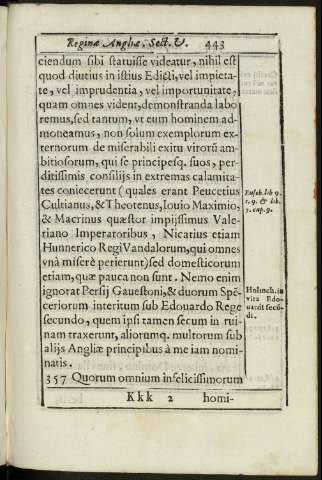 Reginæ Angliæ. Sect. V. 443
ciendum sibi statuisse videatur, nihil est
quod diutius in istius Edicti, vel impieta-
te, vel imprudentia, vel importunitate,
quam omnes vident, demonstranda labo
remus, sed tantum, vt eum hominem ad-
moneamus, non solum exemplorum ex-
ternorum de miserabili exitu virorū am-
bitiosorum, qui se principesq. suos, per-
ditissimis consilijs in extremas calamita-
tes coniecerunt (quales erant Peucetius
Cultianus, & Theotenus, Iouio Maximio,
& Macrinus quæstor impijssimus Vale-
riano Imperatoribus, Nicatius etiam
Hunnerico Regi Vandalorum, qui omnes
vnà miserè perierunt) sed domesticorum
etiam, quæ pauca non sunt. Nemo enim
ignorat Persij Gauestoni, & duorum Spē-
ceriorum interitum sub Edouardo Rege
secundo, quem ipsi tamen secum in rui-
nam traxerunt, aliorumq. multorum sub
alijs Angliæ principibus à me iam nomi-
natis.
357 Quorum omnium infelicissimorum
Kkk 2 homi-
Euseb. lib 9.
c. 9. & lib.
7. cap. 9.
Holinch. in
vita Edo-
uardi secū-
di.